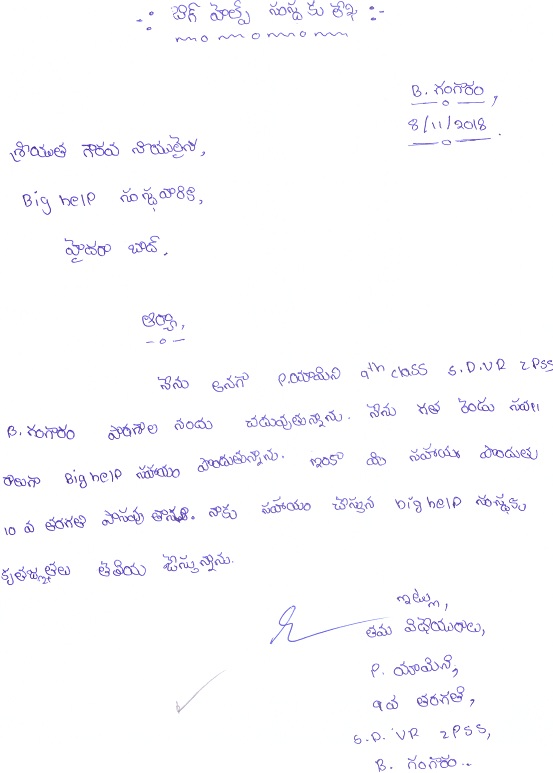 -:: బిగ్ హెల్ప్ సంస్థకు లేఖ ::-
B. గంగారం,
8/11/2018.
శ్రీయుత గౌరవ నీయులైన,
Big help సంస్థవారికి,
హైదరా బాద్.
ఆర్యా,
నేను అనగా P.యామిని 9th class S.D.VR ZPSS
B. గంగారం పాఠశాల నందు చదువుతున్నాను. నేను గత రెండు సంవ
రాలుగా Big help సహాయం పొందుతున్నాను. ఇంకా మీ సహాయం పొందుతు
10 వ తరగతి పాసవు తాను. నాకు సహాయం చేస్తున big help సంస్థకు
కృతజ్ఞతలు తెలియ చేస్తున్నాను.
ఇట్లు,
తమ విధేయురాలు,
P. యామిని,
9వ తరగతి,
S.D. VR ZPSS,
B. గంగారం..